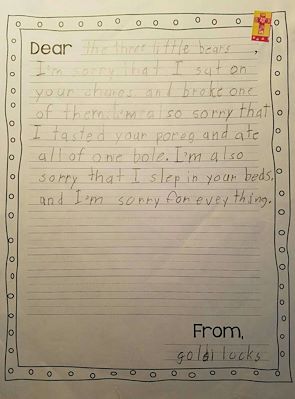 Dear The three little bears,
I'm sorry that I sat on
your chares and broke one
of them. I'm also sorry that
I tasted your poreg and ate
all of one bole. I'm also
sorry that I slep in your beds.
and I'm sorry for evey thing.
From,
goldi locks